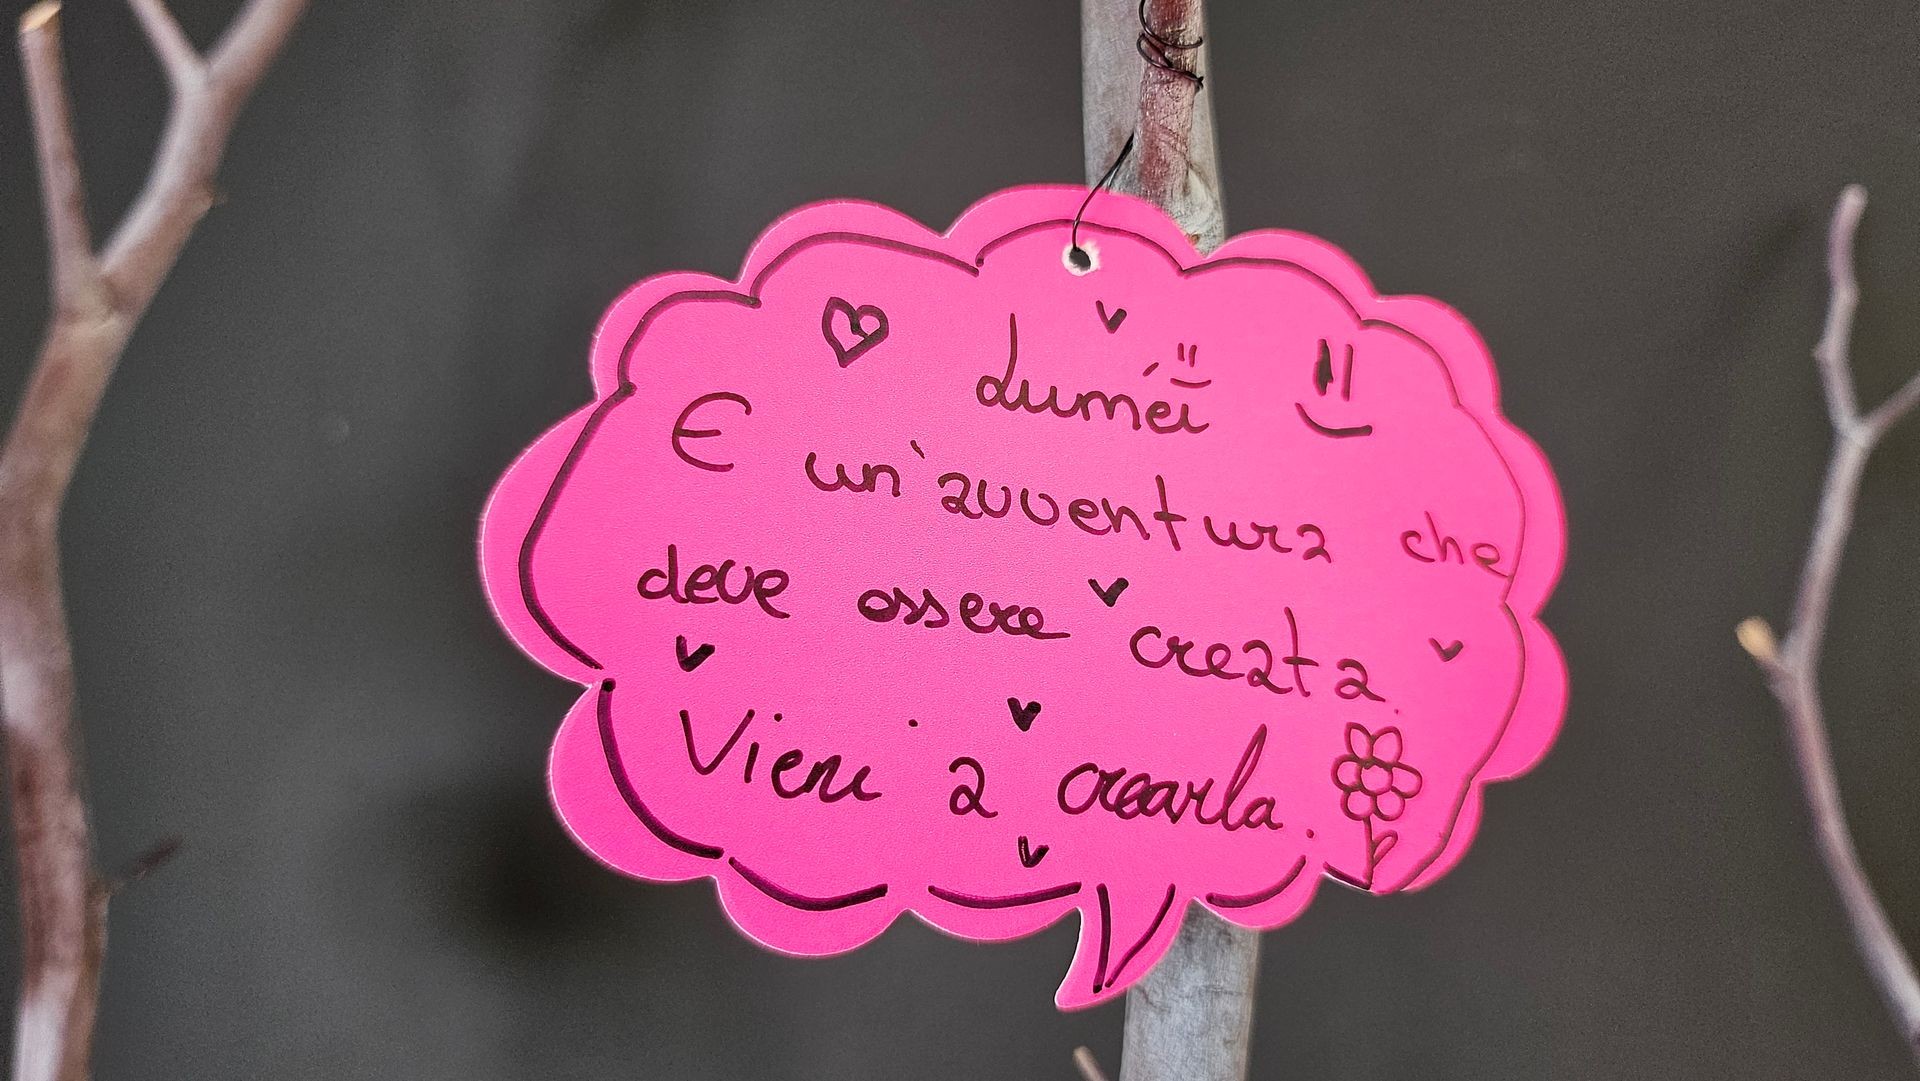 Luméi
E un'avventura che
deve essere creata.
Vieni a crearla.